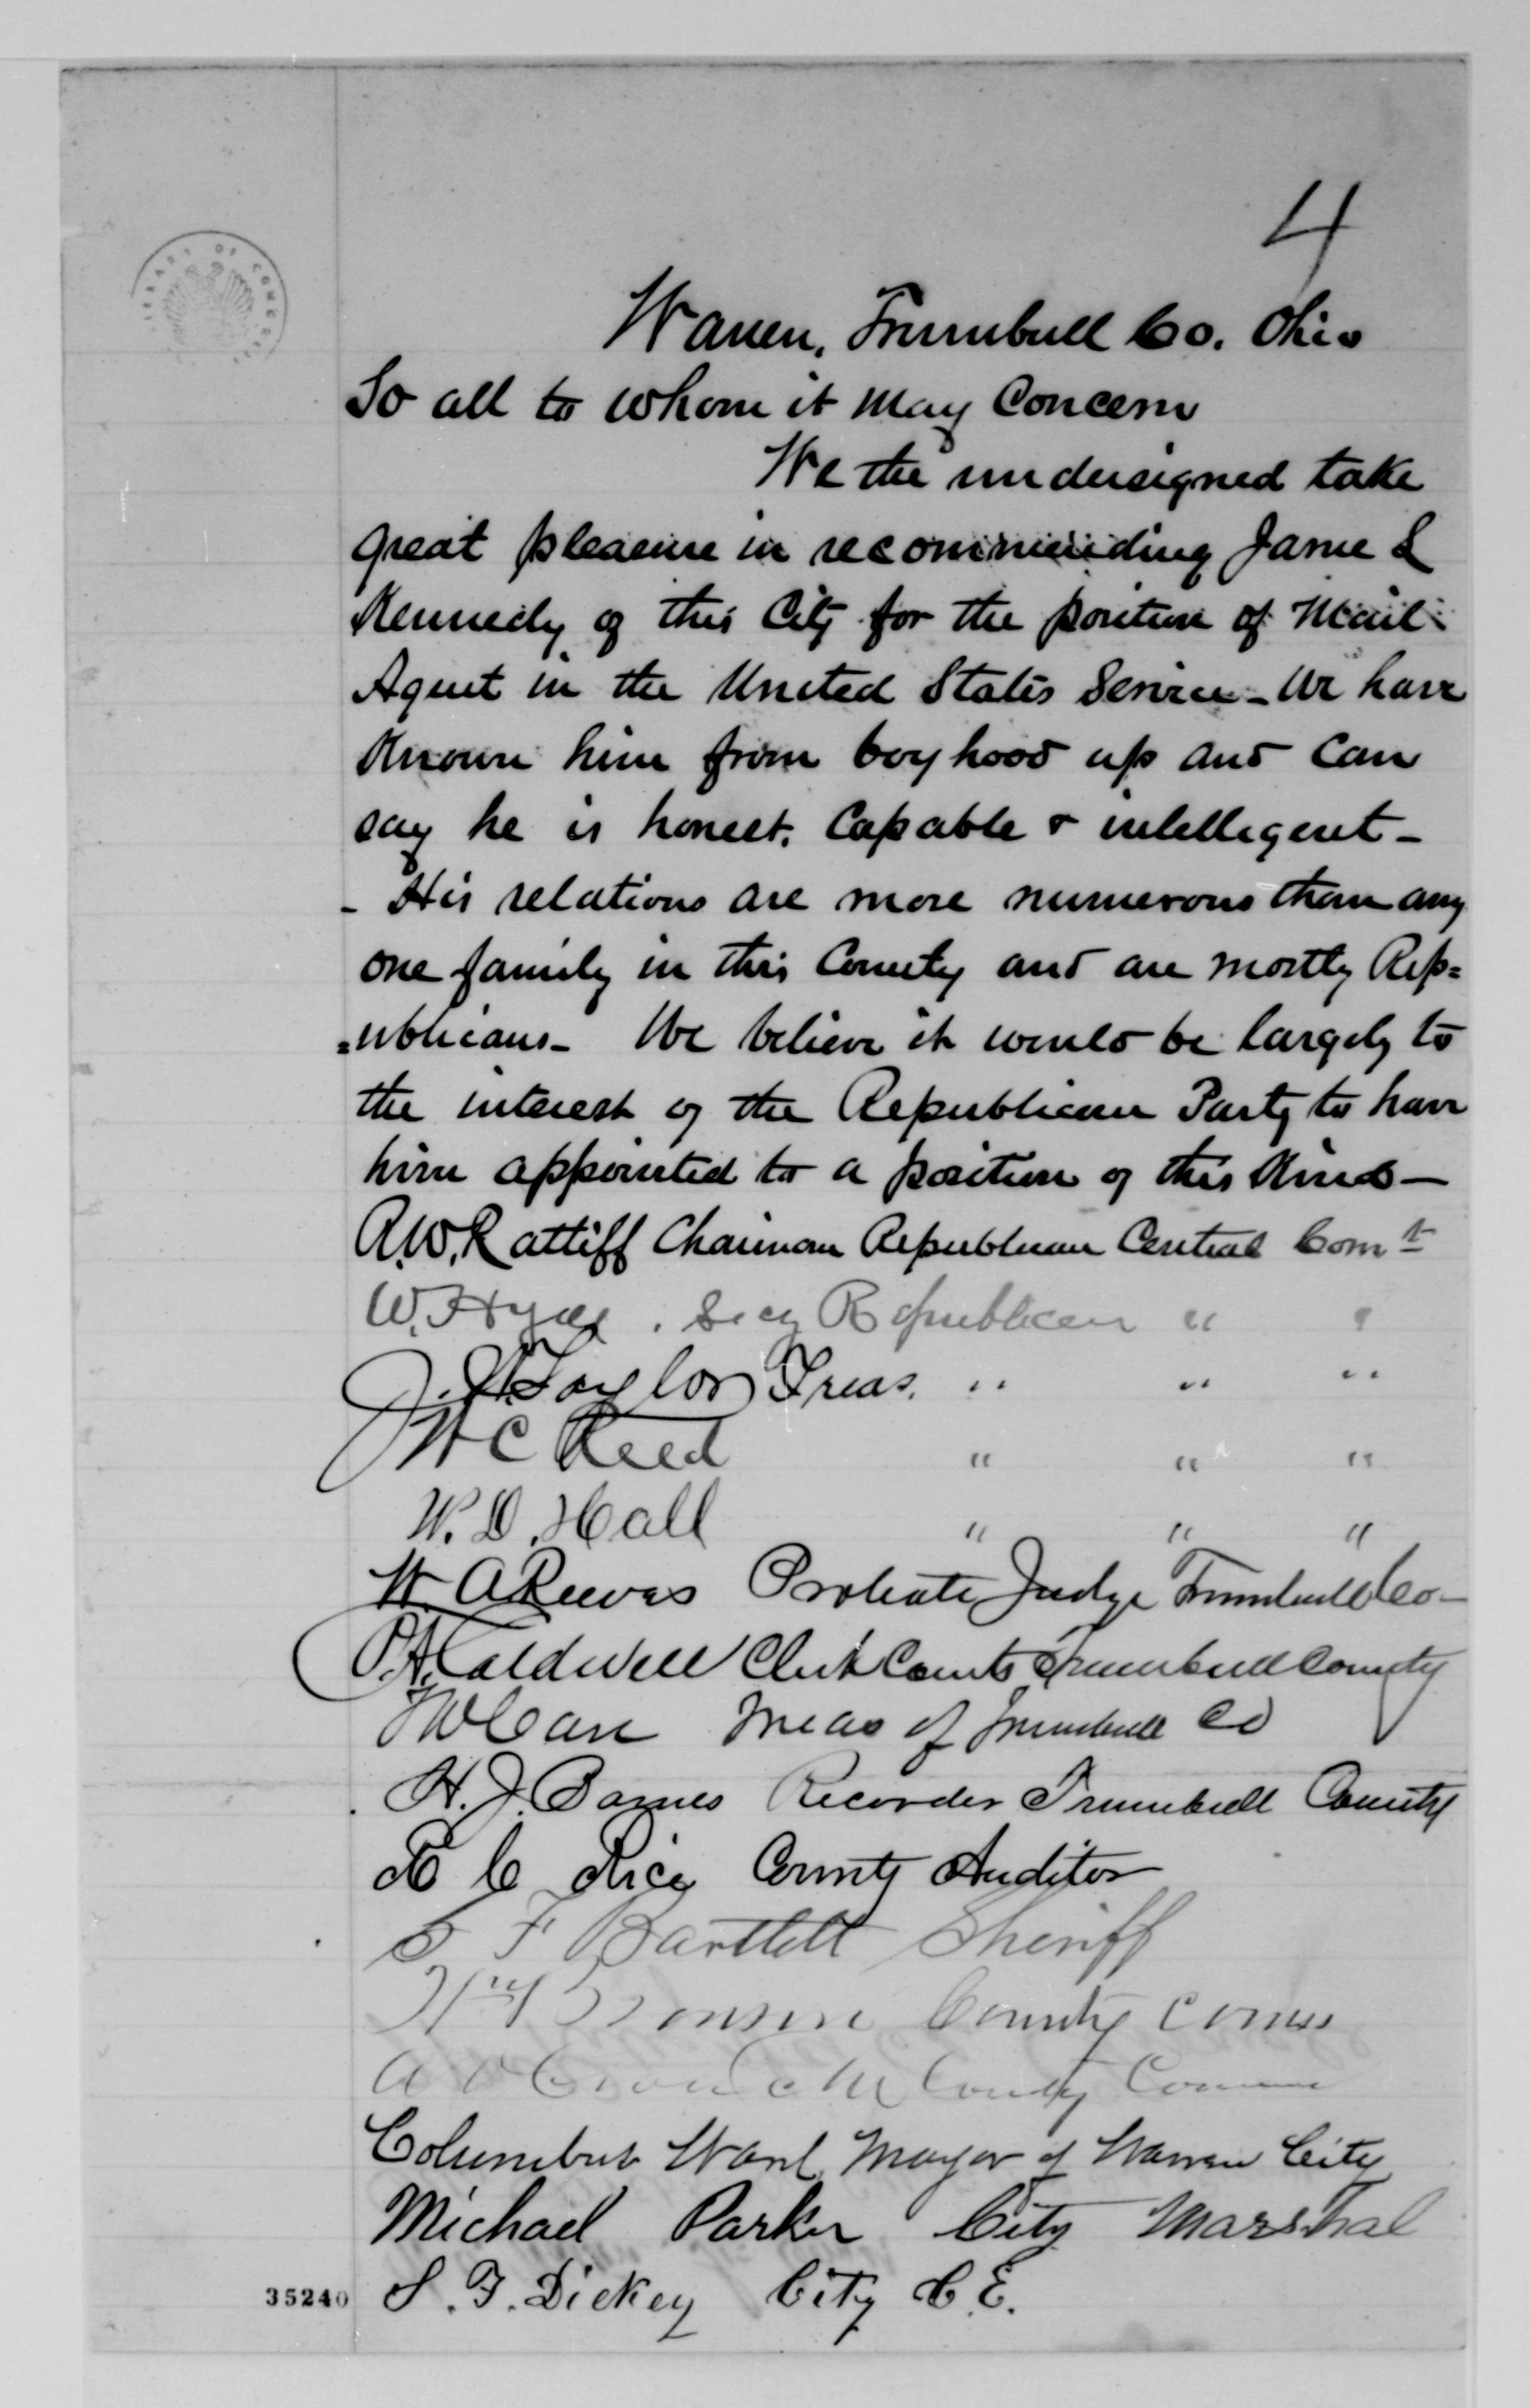 4
Warren, Trumbull Co. Ohio
To all to whom it may Concern
We the undersigned take
great pleasure in recommending Jame L
Kennedy of this City for the position of Mail
Agent in the United States Service - We have
Known him from boyhood up and can
say he is honest, Capable & intelligent -
- His relations are more numerous than any
one family in this County and are mostly Rep=
=ublicans - We believe it would be largely to
the interest of the Republican Party to have
him appointed to a position of this Kind -
A.W. Ratliff Chairman Republican Central Comt
W. Hyde, Secy Republican " "
J. Taylor Treas. " " "
H C Reed " " "
W. D. Hall " " "
W. A Reeves Probate Judge Trumbull Co -
P.A. Caldwell Clerk Courts Trumbull County
Treas of Trumbull Co
H. J. Barnes Recorder Trumbull County
R C Rice County Auditor
S F Bartlett Sheriff
County Comr
County
Columbus Ward Mayor of Warren City
Michael Parker City Marshal
S. F. Dickey City C. E.
35240
LIBRARY OF CONGRESS